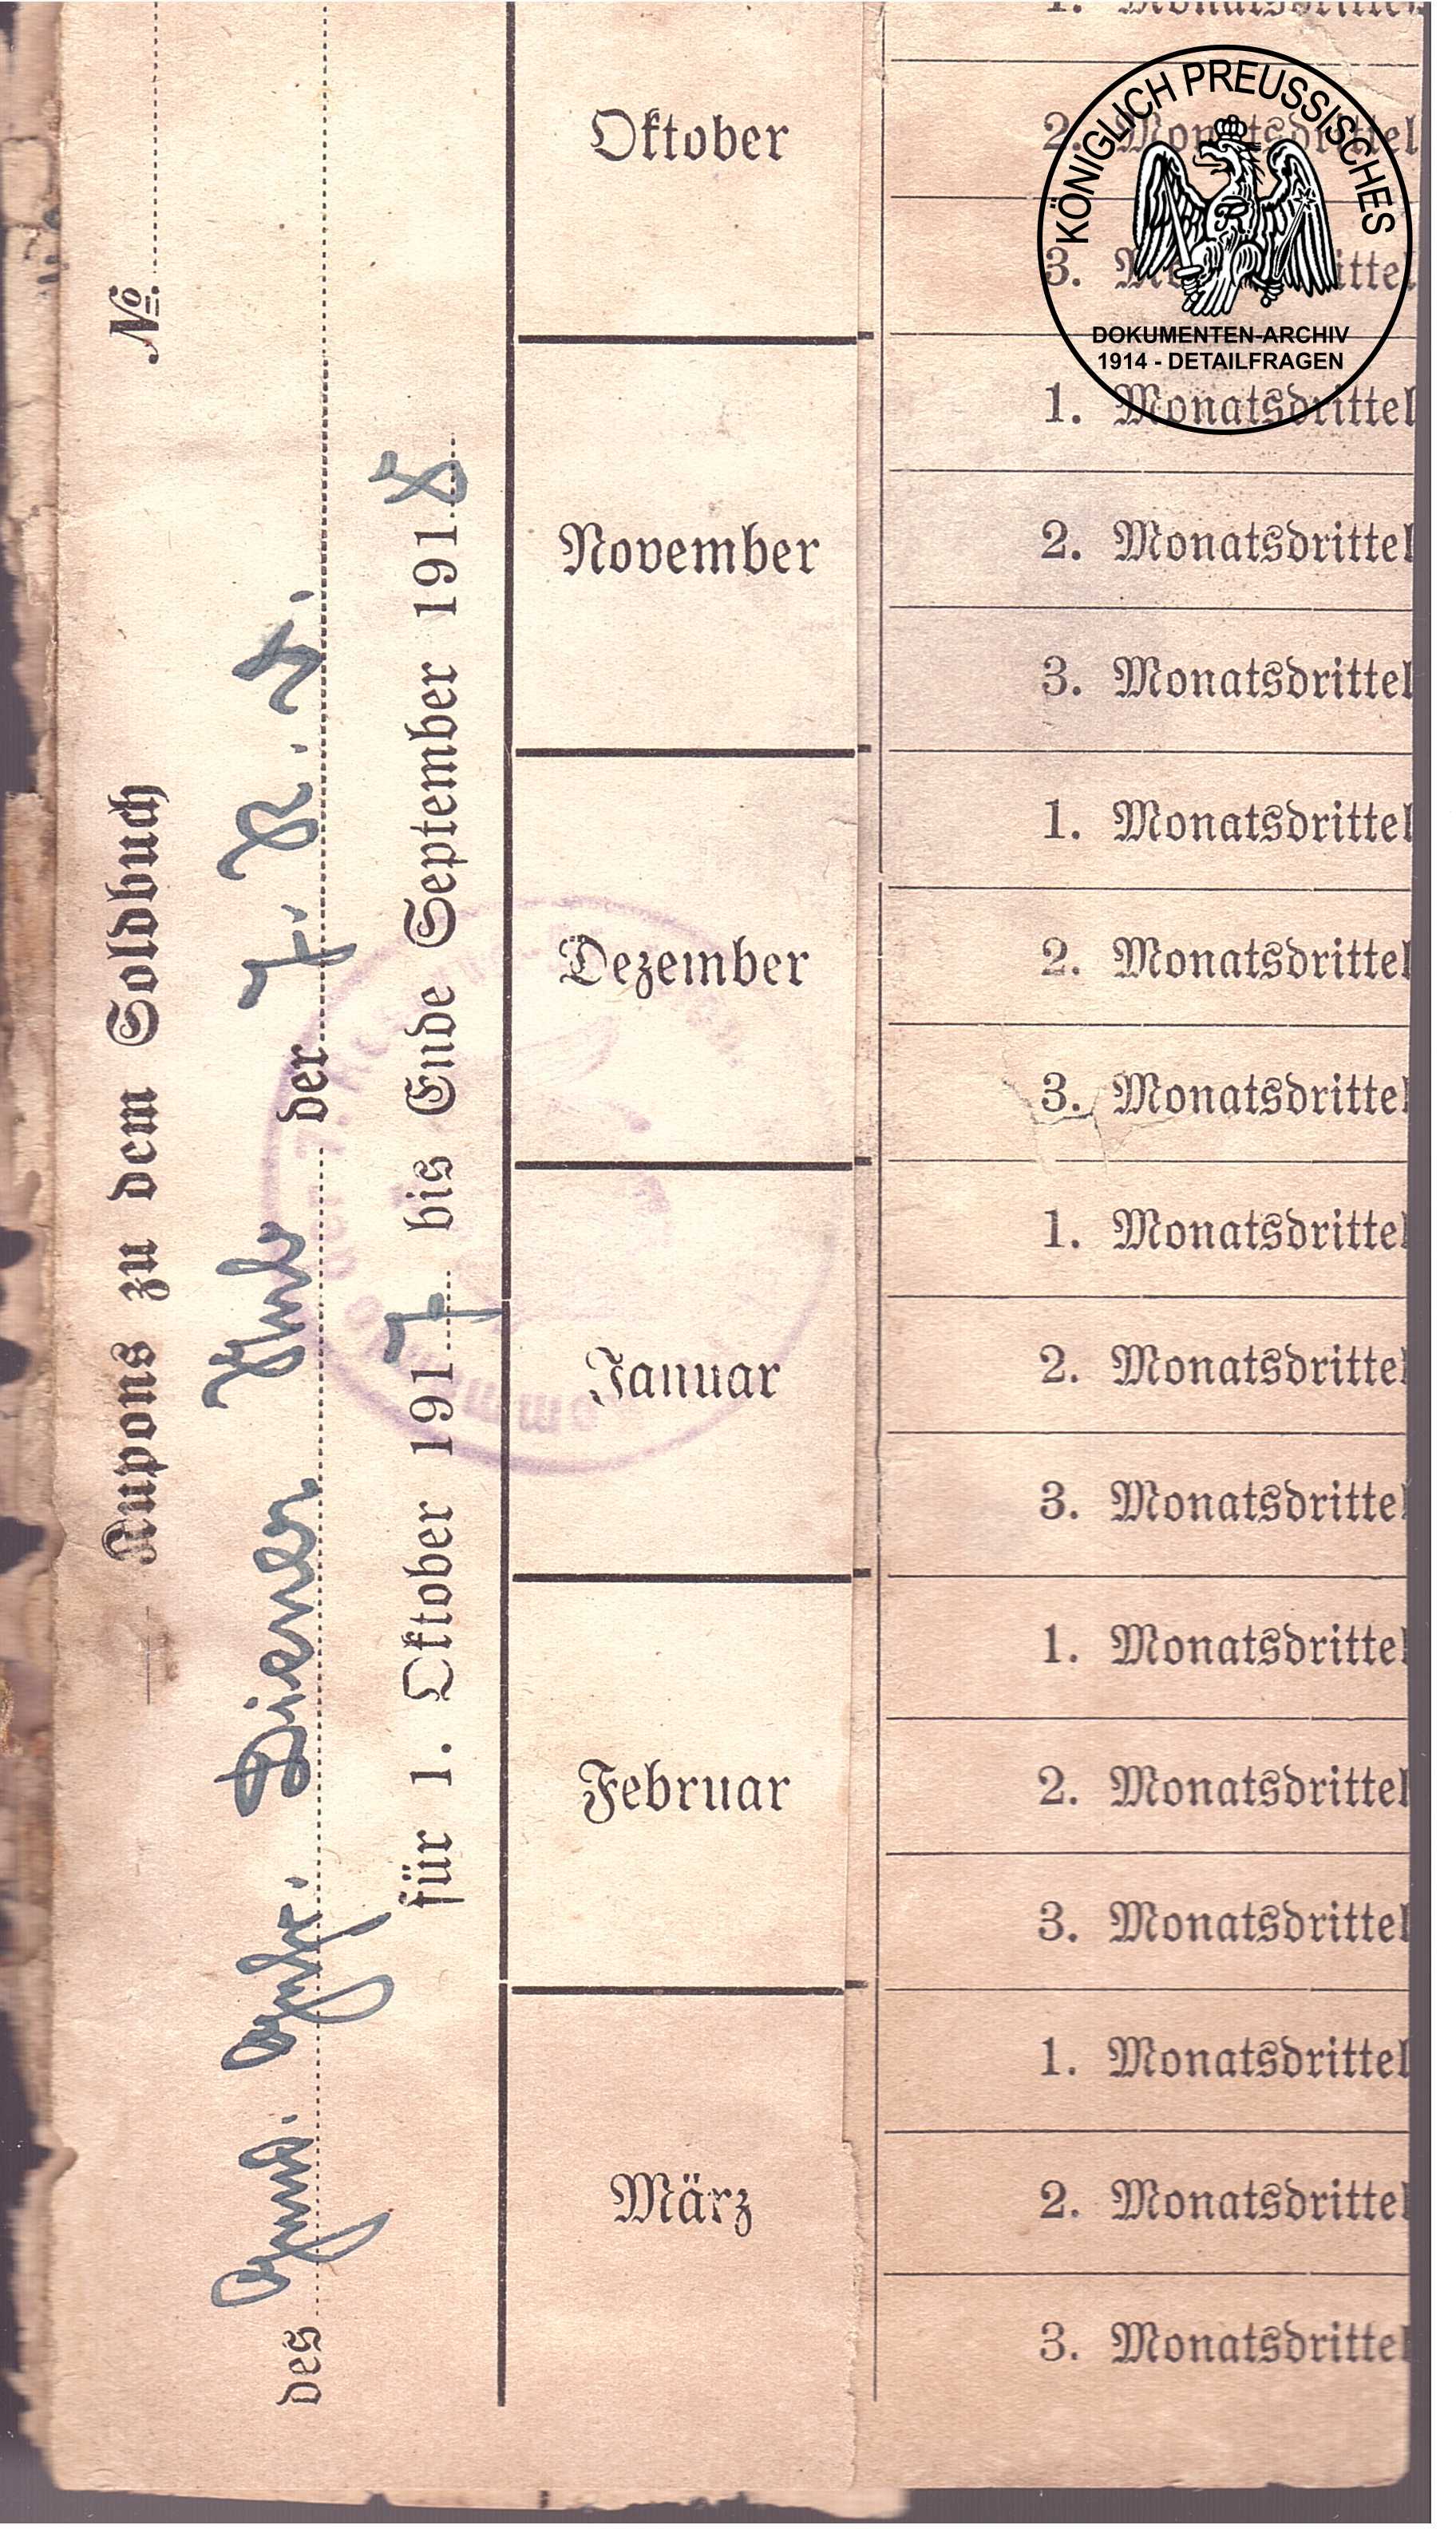 Kupons zu dem Soldbuch №
des Diener der 7.
für 1. Oktober 1917 bis Ende September 1918
1. Monatsdrittel
Oktober
2. Monatsdrittel
3. Monatsdrittel
1. Monatsdrittel
November
2. Monatsdrittel
3. Monatsdrittel
1. Monatsdrittel
Dezember
2. Monatsdrittel
3. Monatsdrittel
1. Monatsdrittel
Januar
2. Monatsdrittel
3. Monatsdrittel
1. Monatsdrittel
Februar
2. Monatsdrittel
3. Monatsdrittel
1. Monatsdrittel
März
2. Monatsdrittel
3. Monatsdrittel
KÖNIGLICH PREUSSISCHES
DOKUMENTEN-ARCHIV
1914 - DETAILFRAGEN